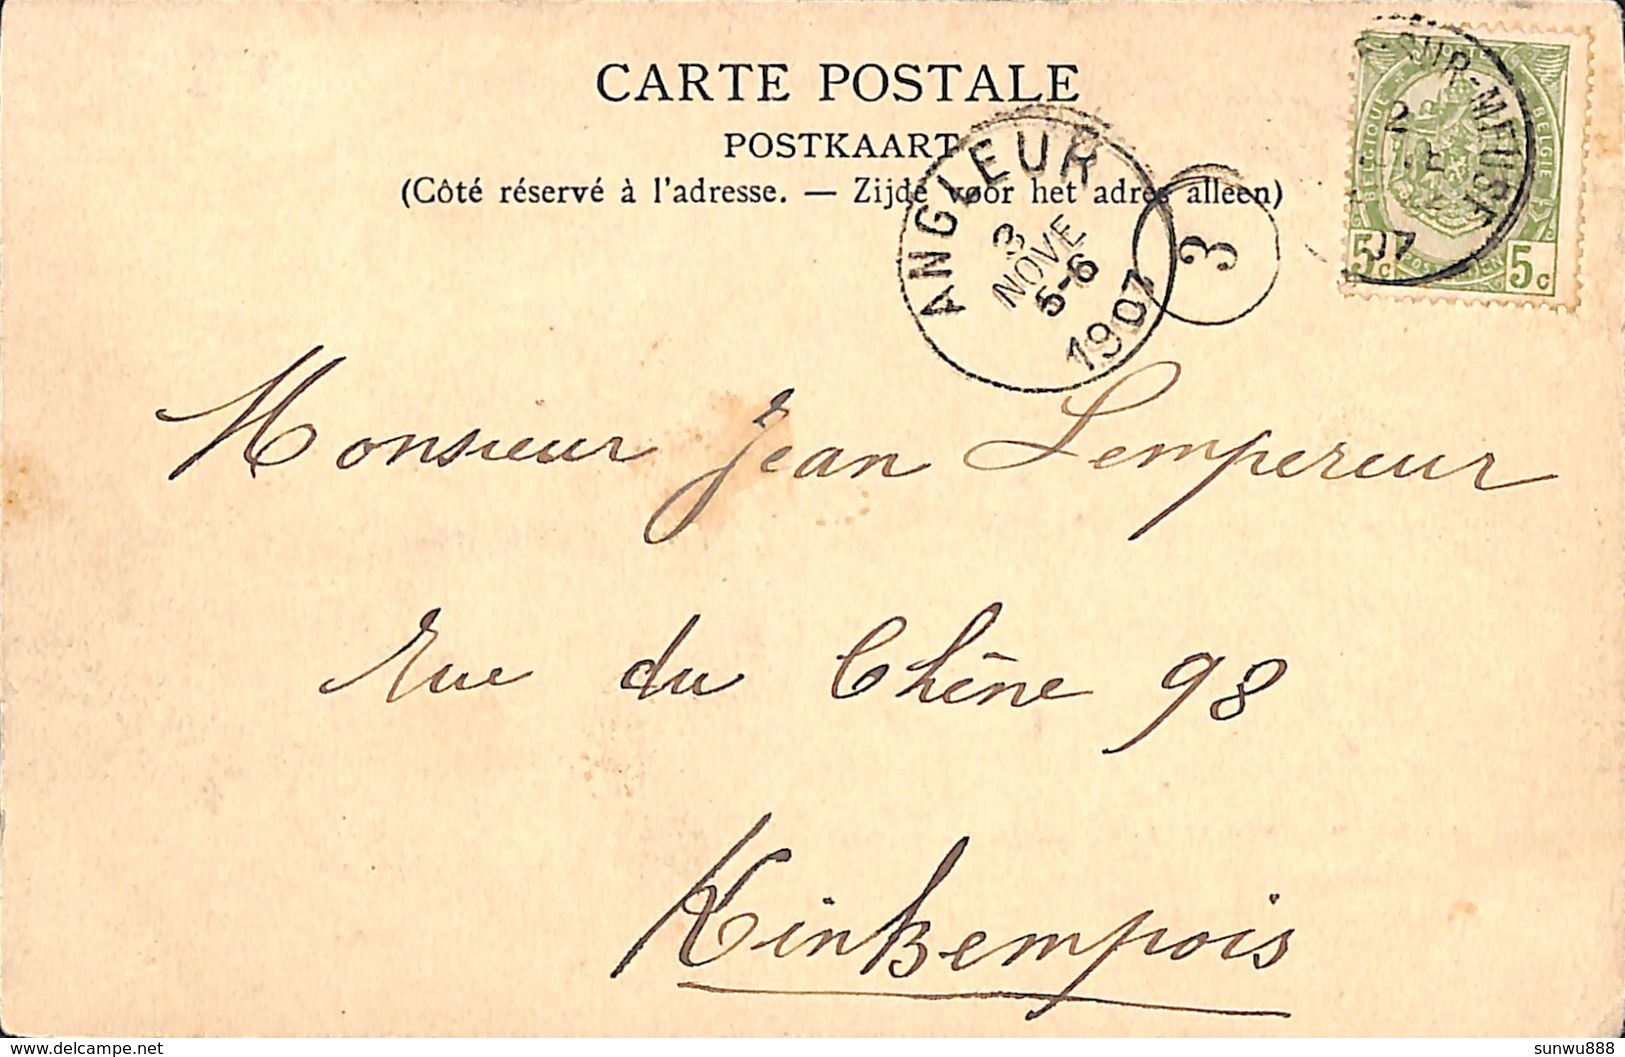 CARTE POSTALE
POSTKAART
(Côté réservé à l'adresse. — Zijde voor het adres alleen)
ANGLEUR
3
NOVE
5-6
1907
3
SUR-MEUSE
2
07
BELGIQUE
BELGIE
5c 5c
Monsieur Jean Lempereur
Rue du Chêne 98
Kinkempois
delcampe.net
sunwu888